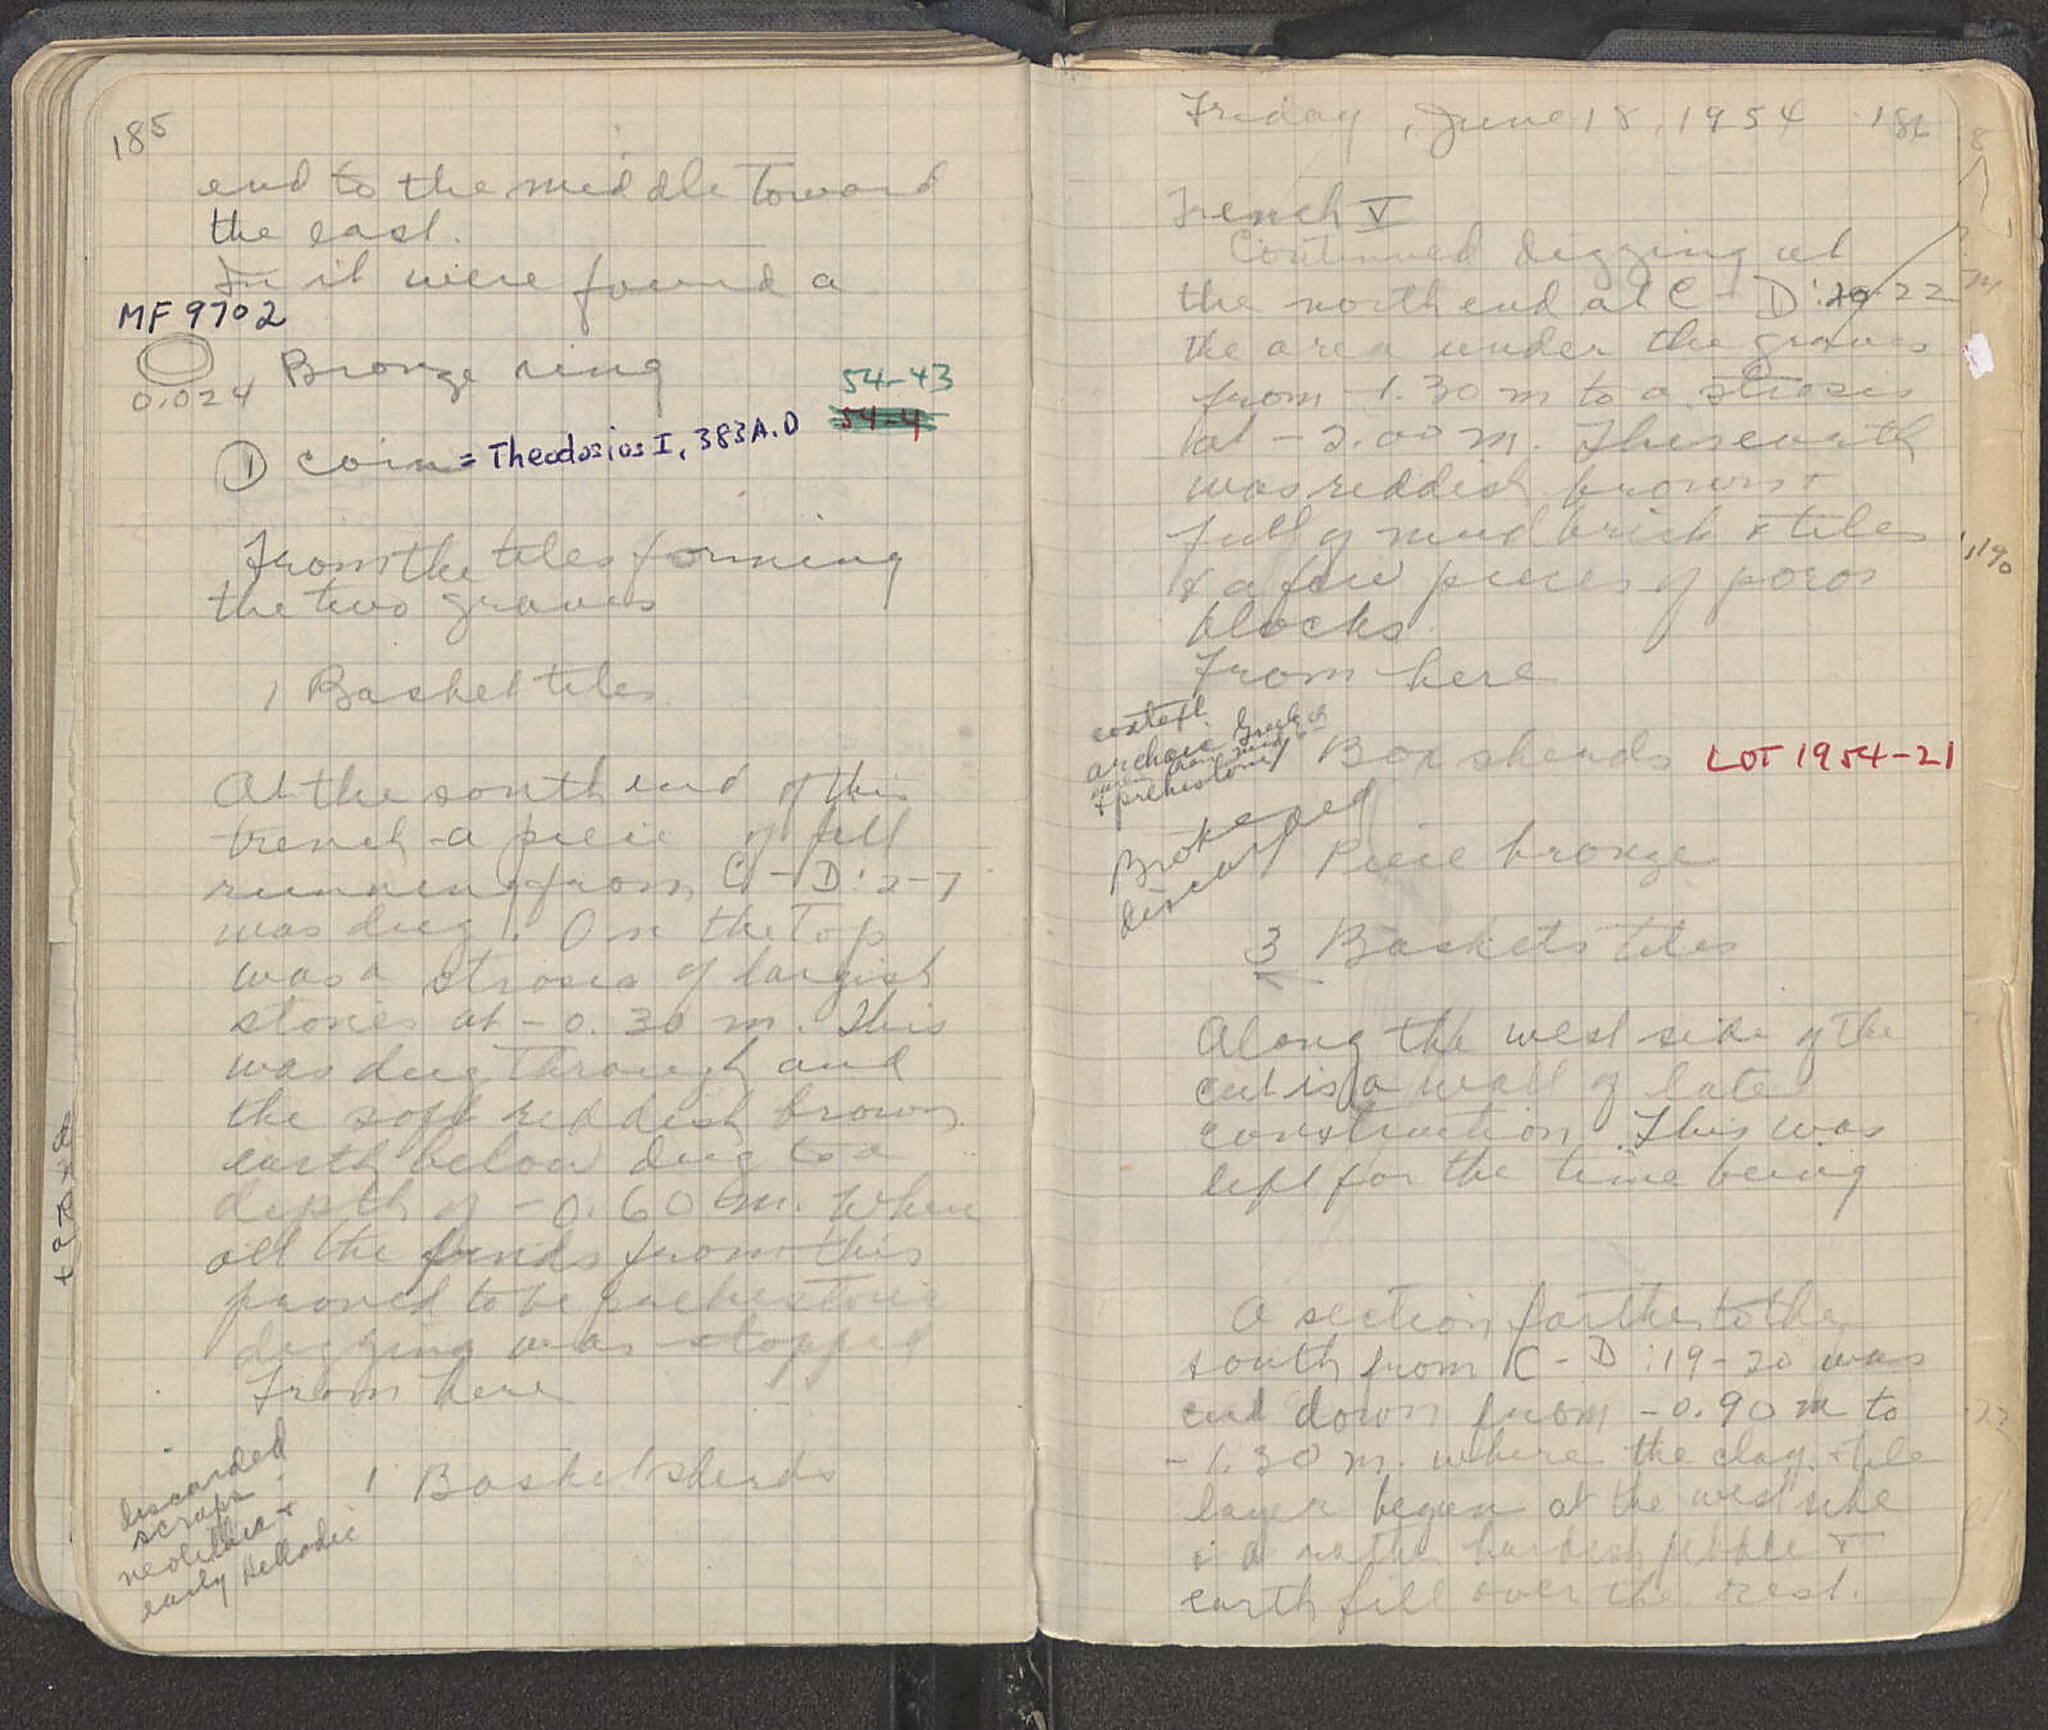 185
end to the middle toward
the east.
In it were found a
MF 9702
0.024
Bronze ring
54-43
54-4
① coin = Theodosius I, 383 A.D
From the tiles forming
the two graves
1 Basket tiles
At the south end of this
trench a piece of fill
running from C-D:2-7
was dug. On the top
was a strosis of largish
stones at -0.30 m. This
was dug through and
the soft reddish brown
earth below dug to a
depth of -0.60 m. When
all the finds from this
proved to be prehistoric
digging was stopped
From here
discarded
scraps
neolithic +
early Helladic
1 Basket sherds
Friday, June 18, 1954
Trench V
Continued digging at
the north end at C-D: 22
the area under the graves
from -1.30 m to a strosis
at -2.00 m. This earth
was reddish brown +
full of mud brick + tiles
& a few pieces of poros
blocks.
From here
context
archaic Greek
+ prehistoric
Box sherds LOT 1954-21
Broken
discard
Piece bronze
3 Baskets tiles
Along the west side of the
cut is a wall of late
construction. This was
left for the time being
A section farther to the
south from C-D:19-20 was
cut down from -0.90 m to
-1.30 m. where the clay + tile
layer began at the west side
& a rather hardish pebble +
earth fill over the rest.